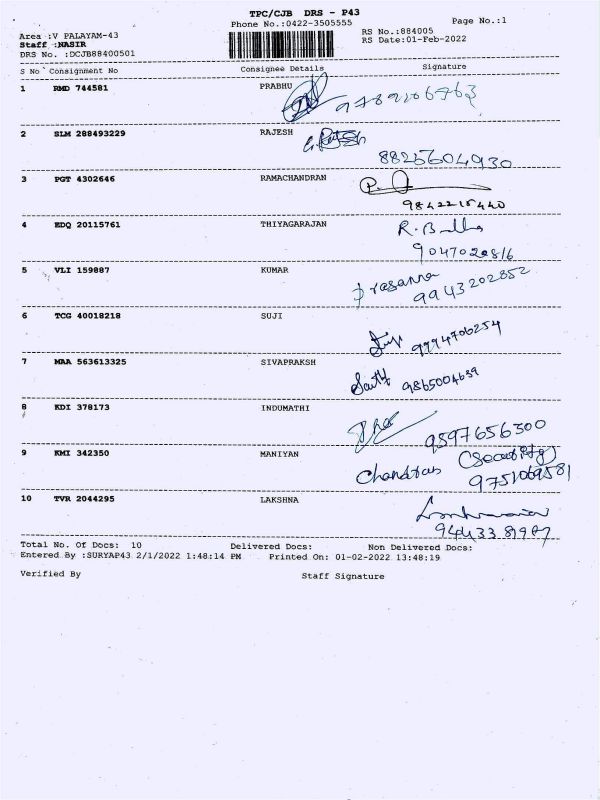 TPC/CJB DRS - P43
Phone No.:0422-3505555
Page No.:1
Area :V PALAYAM-43
RS No.:884005
Staff :NASIR
RS Date:01-Feb-2022
DRS No. :DCJB88400501
S No Consignment No Consignee Details Signature
1 RMD 744581 PRABHU
2 SLM 288493229 RAJESH
3 PGT 4302646 RAMACHANDRAN
9842215440
4 EDQ 20115761 THIYAGARAJAN
9047020816
5 VLI 159887 KUMAR
Prasanna
9943202852
6 TCG 40018218 SUJI
9994706254
7 MAA 563613325 SIVAPRAKSH
9865004639
8 KDI 378173 INDUMATHI
9597656300
9 KMI 342350 MANIYAN
Chandran (Security)
9751069581
10 TVR 2044295 LAKSHNA
Total No. Of Docs: 10 Delivered Docs: Non Delivered Docs:
Entered By :SURYAP43 2/1/2022 1:48:14 PM Printed On: 01-02-2022 13:48:19
Verified By Staff Signature